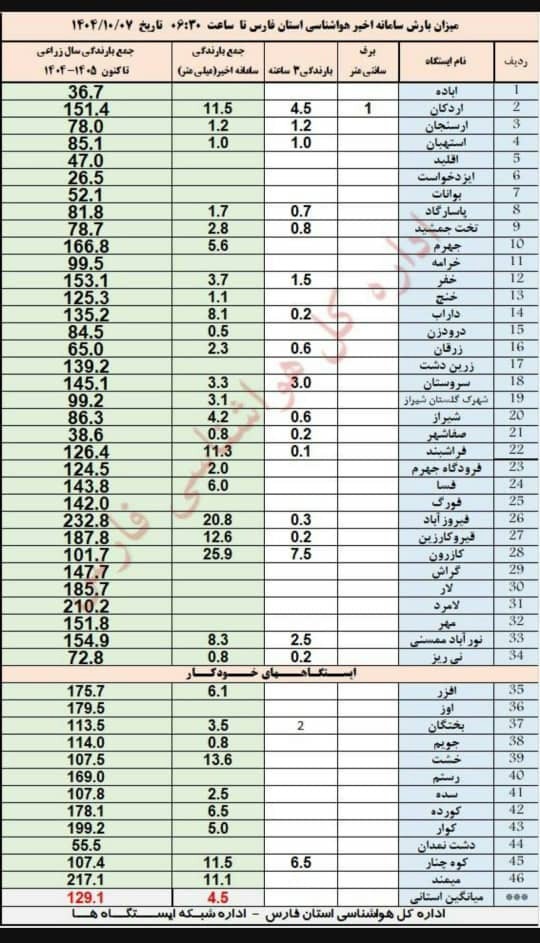 میزان بارش سامانه اخیر هواشناسی استان فارس تا ساعت ۰۶:۳۰ تاریخ ۱۴۰۴/۱۰/۰۷
ردیف نام ایستگاه برف سانتی متر بارندگی ۳ ساعته جمع بارندگی سامانه اخیر(میلی متر) جمع بارندگی سال زراعی تا کنون ۱۴۰۵-۱۴۰۴
۱ اباده 36.7
۲ اردکان 1 4.5 11.5 151.4
۳ ارسنجان 1.2 1.2 78.0
۴ استهبان 1.0 1.0 85.1
۵ اقلید 47.0
۶ ایزدخواست 26.5
۷ بوانات 52.1
۸ پاسارگاد 0.7 1.7 81.8
۹ تخت جمشید 0.8 2.8 78.7
۱۰ جهرم 5.6 166.8
۱۱ خرامه 99.5
۱۲ خفر 1.5 3.7 153.1
۱۳ خنج 1.1 125.3
۱۴ داراب 0.2 8.1 135.2
۱۵ درودزن 0.5 84.5
۱۶ زرقان 0.6 2.3 65.0
۱۷ زرین دشت 139.2
۱۸ سروستان 3.0 3.3 145.1
۱۹ شهرک گلستان شیراز 3.1 99.2
۲۰ شیراز 0.6 4.2 86.3
۲۱ صفاشهر 0.2 0.8 38.6
۲۲ فراشبند 0.1 11.3 126.4
۲۳ فرودگاه جهرم 2.0 124.5
۲۴ فسا 6.0 143.8
۲۵ فورگ 142.0
۲۶ فیروزآباد 0.3 20.8 232.8
۲۷ قیروکارزین 0.2 12.6 187.8
۲۸ کازرون 7.5 25.9 101.7
۲۹ گراش 147.7
۳۰ لار 185.7
۳۱ لامرد 210.2
۳۲ مهر 151.8
۳۳ نورآباد ممسنی 2.5 8.3 154.9
۳۴ نی ریز 0.2 0.8 72.8
ایستگاههای خودکار
۳۵ افزر 6.1 175.7
۳۶ اوز 179.5
۳۷ بختگان 2 3.5 113.5
۳۸ جویم 0.8 114.0
۳۹ خشت 13.6 107.5
۴۰ رستم 169.0
۴۱ سده 2.5 107.8
۴۲ کورده 6.5 178.1
۴۳ کوار 5.0 199.2
۴۴ دشت نمدان 55.5
۴۵ کوه چنار 6.5 11.5 107.4
۴۶ میمند 11.1 217.1
*** میانگین استانی 4.5 129.1
اداره کل هواشناسی استان فارس - اداره شبکه ایستگاه ها
اداره کل هواشناسی فارس